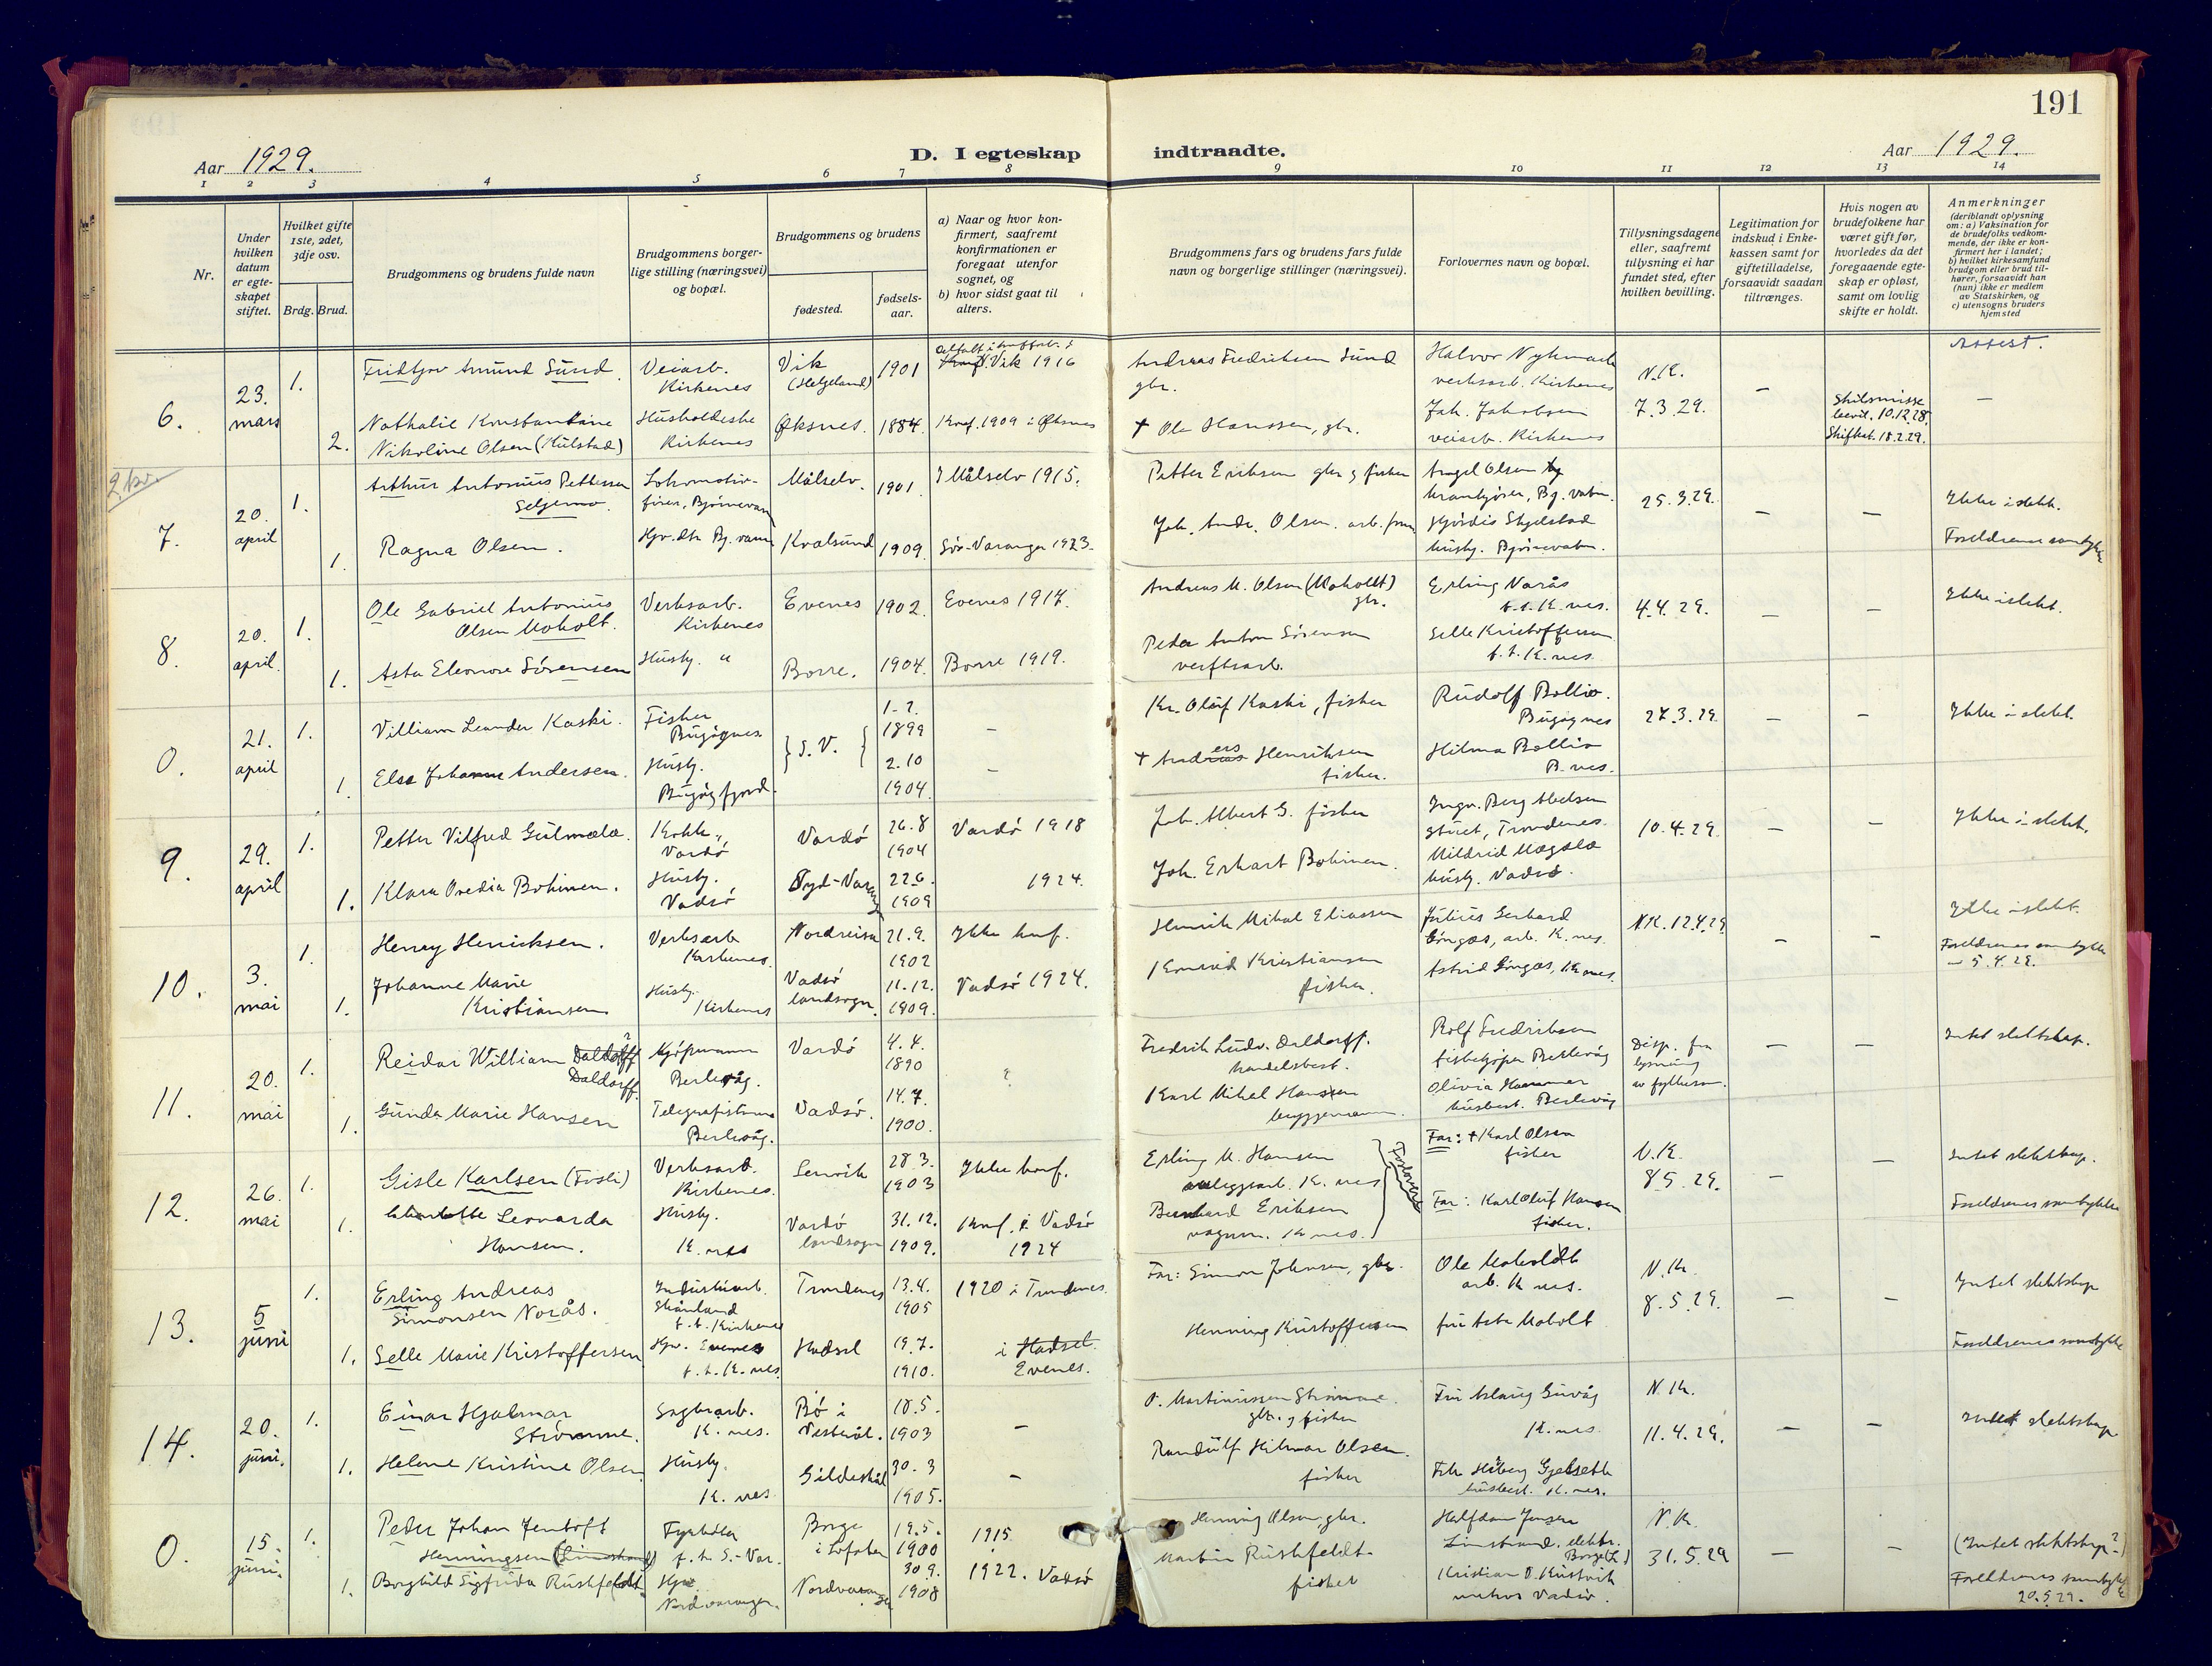 191
Aar 1929.
D. I egteskap indtraadte.
Aar 1929.
1 2 3 4 5 6 7 8 9 10 11 12 13 14
Nr.
Under hvilken datum er egteskapet stiftet.
Hvilket gifte 1ste, 2det, 3dje osv.
Brdg. Brud.
Brudgommens og brudens fulde navn
Brudgommens borgerlige stilling (næringsvei) og bopæl.
Brudgommens og brudens
fødested.
fødselsaar.
a) Naar og hvor konfirmert, saafremt konfirmationen er foregaat utenfor sognet, og
b) hvor sidst gaat til alters.
Brudgommens fars og brudens fars fulde navn og borgerlige stillinger (næringsvei).
Forlovernes navn og bopæl.
Tillysningsdagene eller, saafremt tillysning ei har fundet sted, efter hvilken bevilling.
Legitimation for indskud i Enkekassen samt for giftetilladelse, forsaavidt saadan tiltrænges.
Hvis nogen av brudefolkene har været gift før, hvorledes da det foregaaende egteskap er opløst, samt om lovlig skifte er holdt.
Anmerkninger
(deriblandt oplysning om: a) Vaksination for de brudefolks vedkommende, der ikke er konfirmert her i landet; b) hvilket kirkesamfund brudgom eller brud tilhører, forsaavidt han (hun) ikke er medlem av Statskirken, og c) utensogns bruders hjemsted
6. 23. mars
1. Fridtjov Amund Sund. Veiarb. Kirkenes Vik (Helgeland) 1901 Vik 1916
Andreas Fredriksen Sund gbr.
Halvor Nykmark verksarb. Kirkenes
N.K. 7.3.29. –
Skilsmisse bevil. 10.12.28. Skifteat. 18.2.29.
Attest. –
2. Nathalie Konstantine Nikoline Olsen (Kulstad) Husholderske Kirkenes Øksnes. 1884. Konf. 1909 i Øksnes
† Ole Hanssen, gbr.
Joh. Jakobsen veiarb. Kirkenes
7. 20. april
1. Arthur Antonius Pettersen Seljemo. Lokomotivfører, Bjørnevann Målselv. 1901. I Målselv 1915.
Petter Eriksen gbr og fisker
Angel Olsen krankjører, Bj. vatn.
25.3.29. – –
Ikke i slekt.
1. Ragna Olsen. Hjv. dtr Bj. vann Kvalsund 1909. Sør-Varanger 1923.
Joh. Andr. Olsen. arb. form
Hjördis Skjelstad husby. Bjørnevatn.
Foreldrenes samtykke
8. 20. april.
1. Ole Gabriel Antonius Olsen Moholt. Verksarb. Kirkenes Evenes 1902. Evenes 1917.
Andreas M. Olsen (Moholdt) gbr.
Erling Norås t.t. K.nes.
4.4.29. – –
Ikke i slekt.
1. Asta Eleonore Sørensen Husby. " Borre. 1904. Borre 1919.
Peder Anton Sørensen verftsarb.
Selle Kristoffersen t.t. K.nes.
0. 21. april
1. Villiam Leander Kaski. Fisker Bugøynes } S.V. { 1-2. 1899 –
Kr. Oluf Kaski, fisker
Rudolf Ballio. Bugøynes
27.3.29. – –
Ikke i slekt.
1. Else Johanne Andersen. Husby. Bugøyfjord. 2.10 1904. –
† Anders Henriksen fisker.
Hilma Ballio B.nes.
9. 29. april
1. Petter Vilfred Gulmælæ. Kokk, Vardø Vardø 26.8 1904 Vardø 1918
Joh. Albert G. fisker
Ingv. Berg Abelsen stuert, Trondenes.
10.4.29. – –
Ikke i slekt.
1. Klara Ovedia Bohinen. Husby. Vadsø Syd-Varanger 22.6. 1909 1924.
Joh. Erhart Bohinen.
Mildrid Mægælæ husby. Vadsø.
10. 3. mai
1. Henry Henricksen. Verksarb Kirkenes. Nordreisa 21.9. 1902 Ikke konf.
Henrik Mikal Eliassen
Julius Gerhard Gøngæs, arb. K.nes.
N.K. 12.4.29 – –
Ikke i slekt.
1. Johanne Marie Kristiansen Husby. Kirkenes Vadsø landsogn. 11.12. 1909. Vadsø 1924.
Konrad Kristiansen fisker.
Astrid Gøngæs, K.nes.
Foreldrenes samtykke – 5.4.29.
11. 20. mai
1. Reidar William Daldorff Daldorff. Kjøpmann Berlevåg. Vardø 4.4. 1890 ?
Fredrik Ludv. Daldorff. handelsbest.
Rolf Fredriksen fiskekjøper Berlevåg
Disp. fra lysning av fylkesm. – –
Intet slektskap.
1. Gunda Marie Hansen Telegrafistinne Berlevåg. Vadsø. 14.7. 1900.
Karl Mikal Hansen bryggemann.
Olivia Hammer husbest. Berlevåg
12. 26. mai
1. Gisle Karlsen (Fosli) Verksarb. Kirkenes. Lenvik 28.3. 1903 Ikke konf.
Erling M. Hansen anleggsarb. K.nes
Forlovere
Far: † Karl Olsen fisker
N.K. 8.5.29. – –
Intet slektskap.
1. Charlotte Leonarda Hansen. Husby. K.nes Vardø landsogn 31.12. 1909. Konf. i Vadsø 1924
Bernhard Eriksen vognm. K.nes.
Far: Karl Oluf Hansen fisker.
Foreldrenes samtykke
13. 5 juni
1. Erling Andreas Simonsen Norås. Industriarb. Skånland t.t. Kirkenes Trondenes 13.4. 1905 1920 i Trondenes.
Far: Simon Johnsen, gbr.
Ole Moholdt arb. K.nes.
N.K. 8.5.29. – –
Intet slektskap
1. Selle Marie Kristoffersen Hjv. Evenes t.t. K.nes. Hadsel 19.7. 1910. i Hadsel. Evenes.
Henning Kristoffersen
fru Asta Moholt
Foreldrenes samtykke
14. 20. juni.
1. Einar Hjalmar Strømme. Sagbrarb. K.nes. Bø i Vesterål. 18.5. 1903 –
O. Martinussen Strømme gbr. og fisker
Fru Aslaug Guvåg K.nes.
N.K. 11.4.29. – –
Intet slektskap
1. Helene Kristine Olsen. Husby. K.nes Gildeskål 30.3 1905. –
Randulf Hilmar Olsen. fisker
Frk Høberg Gjelseth husbest. K.nes.
0. 15. juni.
1. Peder Johan Jentoft Henningsen (Limstrand) Fyrbøter f.t. S.-Var. Borge i Lofoten 19.5. 1900 1915
Henning Olsen, gbr.
Halfdan Jensen Limstrand. elektr. Borge (L)
N.K. 31.5.29 – –
(Intet slektskap?)
1. Borghild Sigfrida Rushfeldt. Hjv. Nordvaranger. Nordvaranger 30.9. 1908 1922. Vadsø
Martin Rushfeldt fisker
Kristian O. Kristvik Vadsø.
Foreldrenes samtykke 20.5.29.